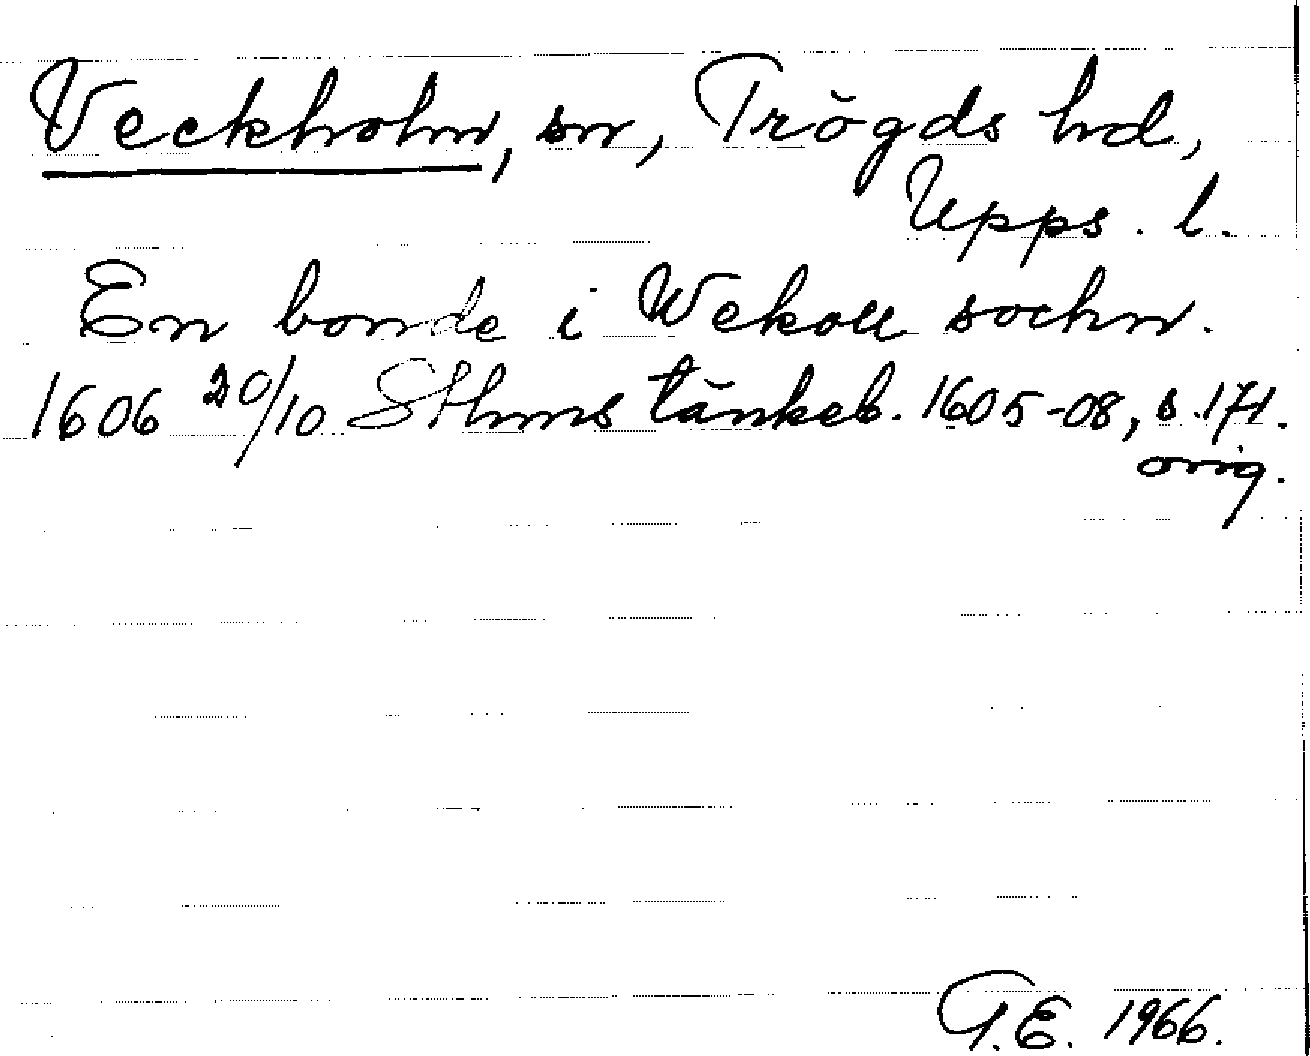 Veckholm, sn, Trögds hd,
Upps. l.
En bonde i Wekoll sochn.
1606 20/10 Sthms tänkeb. 1605-08, s. 171.
orig.
G.E. 1966.